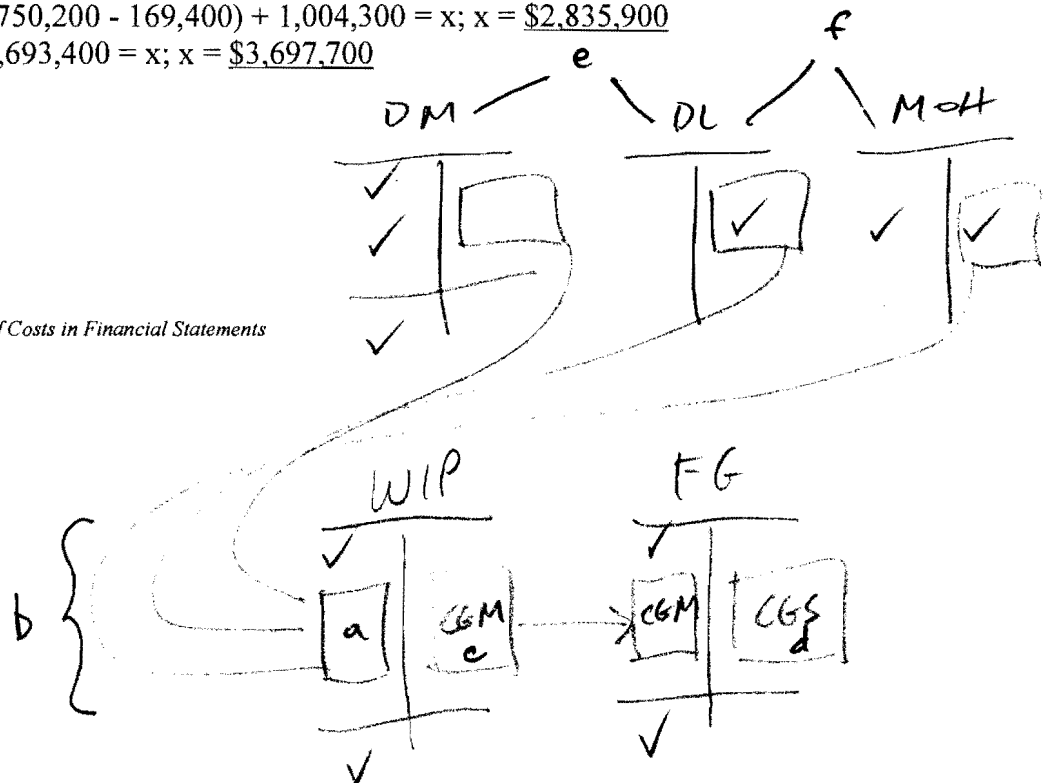 750,200 - 169,400) + 1,004,300 = x; x = $2,835,900
,693,400 = x; x = $3,697,700
e f
DM DL MOH
✓
✓ ✓ ✓ ✓
Costs in Financial Statements
✓
WIP FG
✓ ✓
b { a CGM c CGM CGS d
✓ ✓